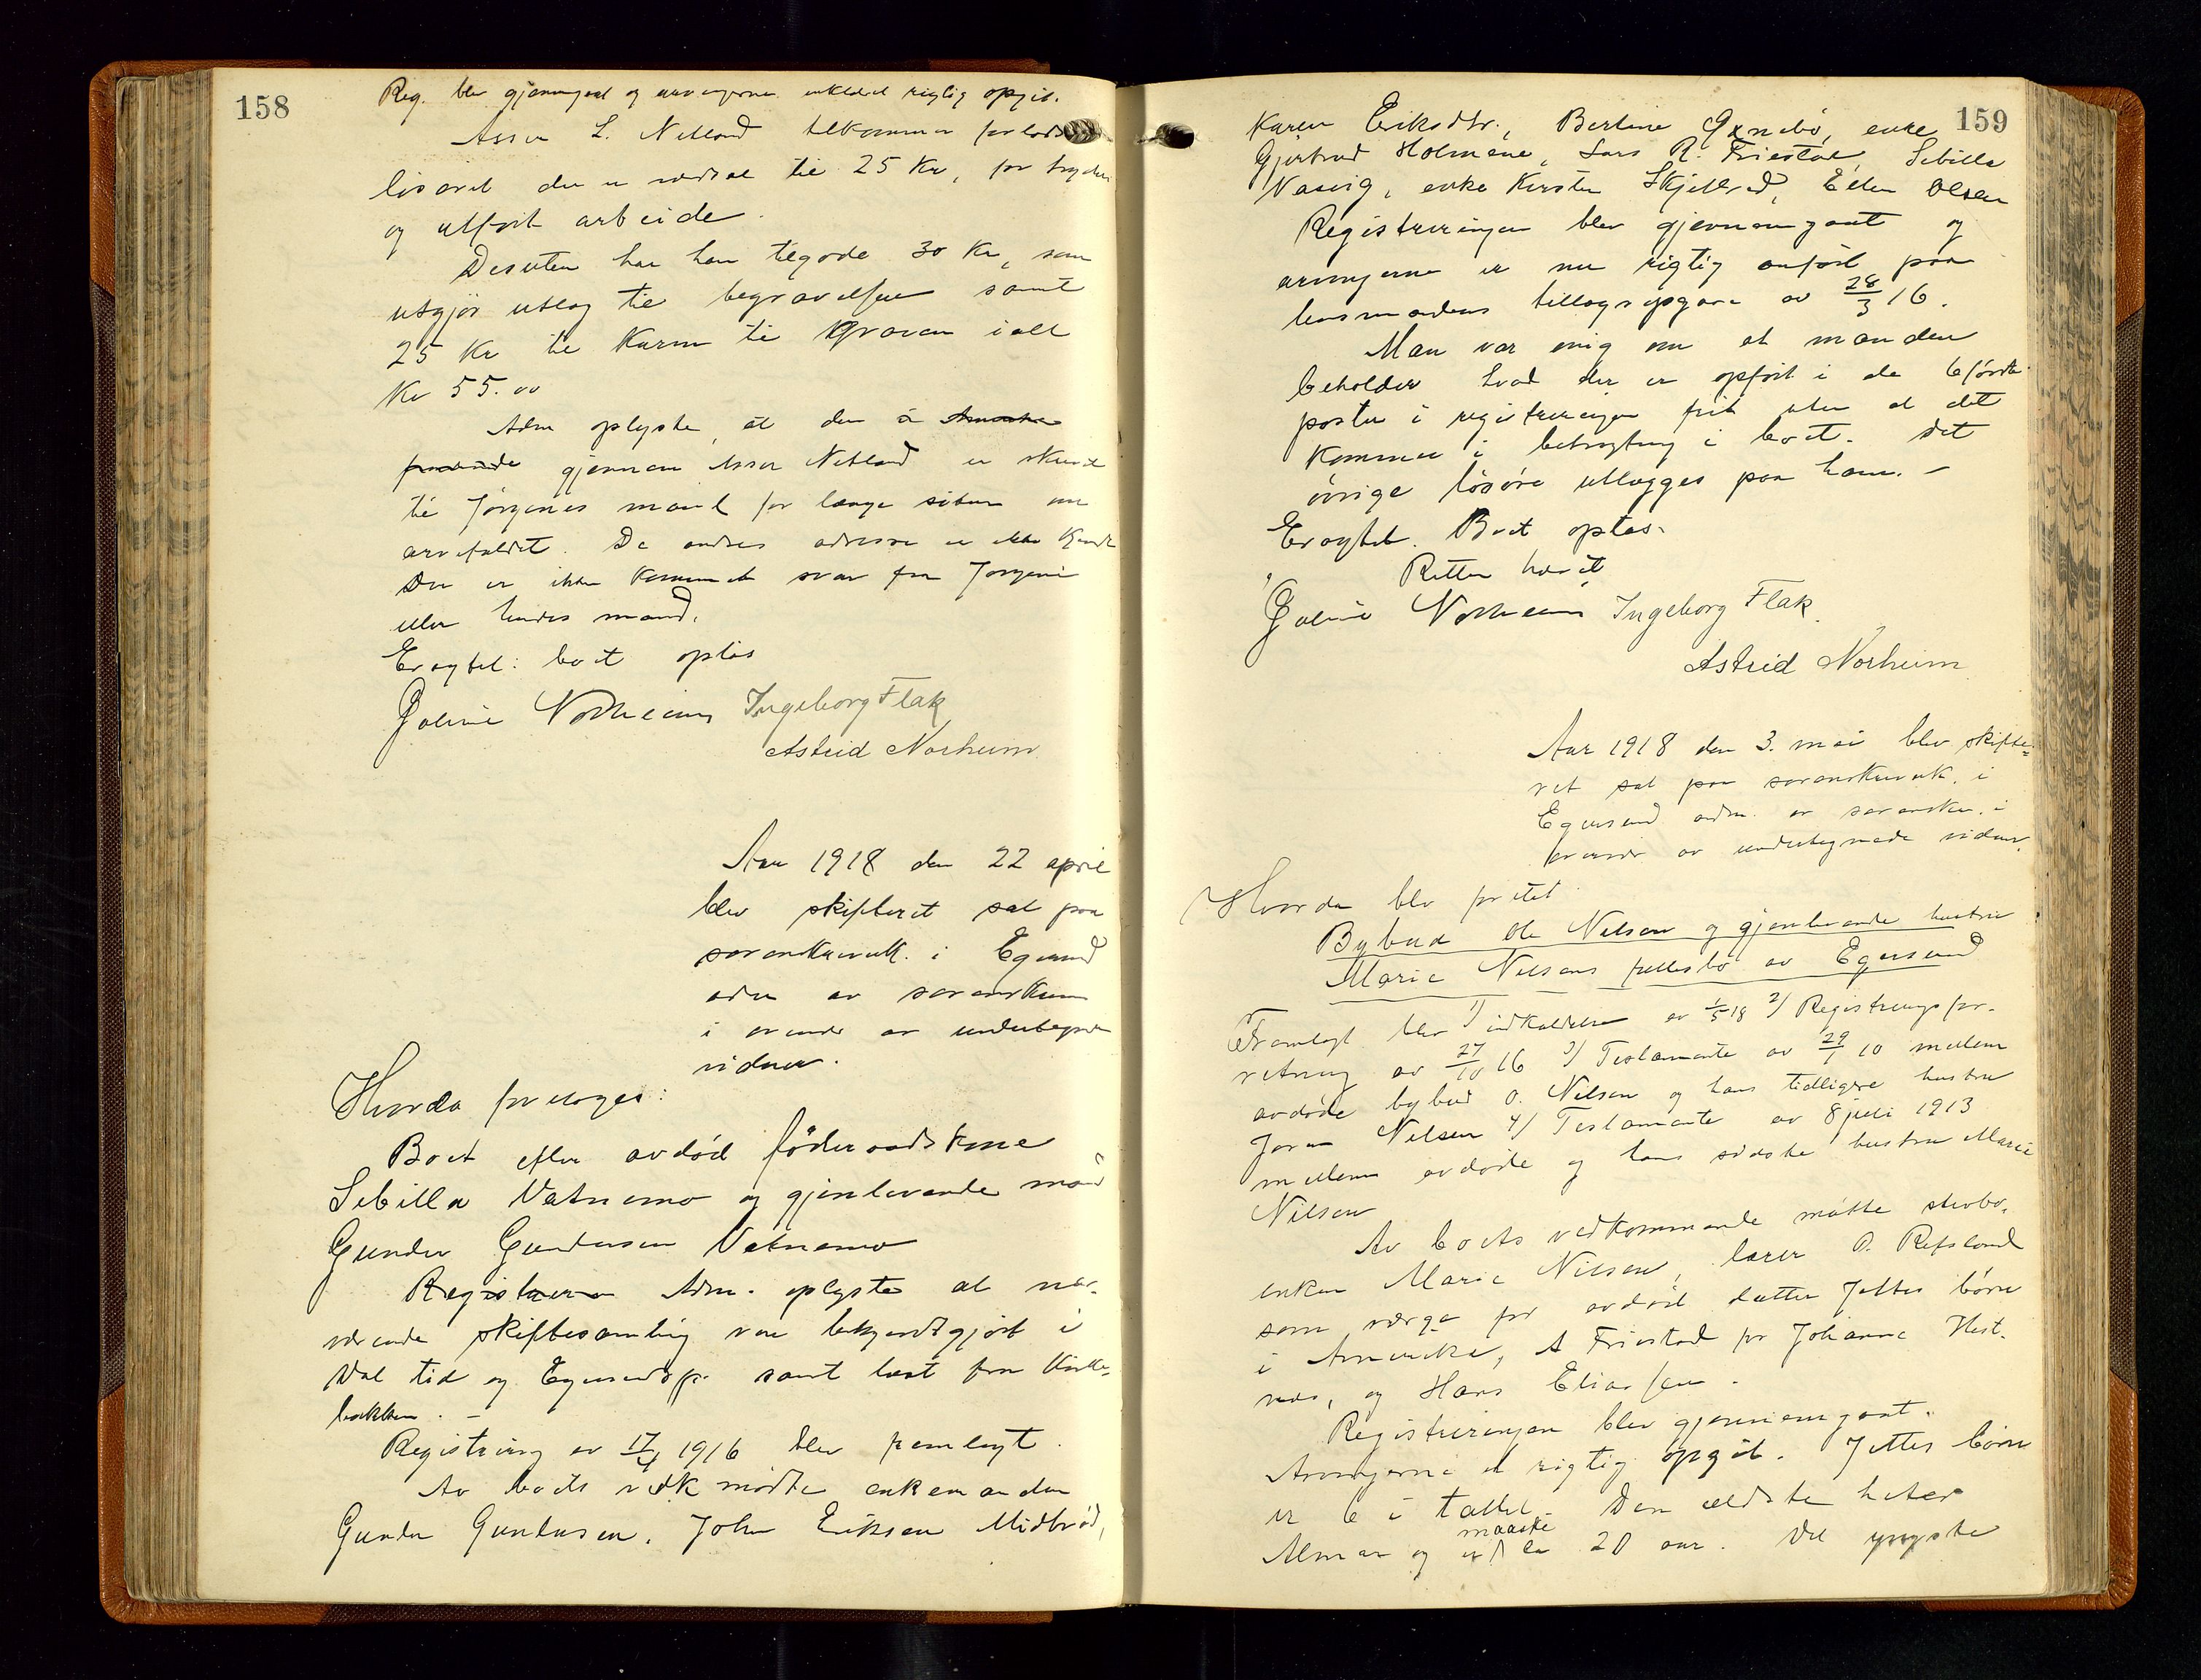 158
Reg. blev gjennemgaat og arvingerne erklært rigtig opgit.
Asser L. Netland tilkommer for
løsøret der er vurdert til 25 Kr, for
og utført arbeide.
Desuten har han tilgode 30 Kr, som
utgjør utlæg til begravelsen samt
25 Kr til Karm til graven ialt
Kr 55.00
Adm oplyste, at der
gjennem Asser Netland er skrevet
til Jørgines mand for længe siden om
arvefaldet. De andres adresse er ikke kjendt
Der er ikke kommet svar fra Jørgine
eller hendes mand.
Eragtet: boet opløs
Goline Norheim Ingeborg Flak
Astrid Norheim.
Aar 1918 den 22 april
blev skifteret sat paa
sorenskriverk. i Egersund
adm av sorenskriveren
i overvær av undertegnede
vidner.
Hvorda foretoges:
Boet efter avdød føderaadskone
Sibilla Vatnemo og gjenlevende mand
Gunder Gundersen Vatnemo
Registrerin Adm. oplyste at nær-
værende skiftesamling var bekjendtgjort i
Dal. tid og Egersundsp. samt læst fra Kirke-
bakken. –
Registrering av 17/4 1916 blev fremlagt.
Av boets vedk møtte enkemanden
Gunder Gundersen, John Eriksen Midbrød,
159
Karen Eriksdtr., Bertine Gxnebø, enke
Gjertrud Holmene, Lars R. Friestad, Sibilla
Nasvig, enke Kirsten Skjelbred, Ellen Olsen
Registreringen blev gjennemgaat og
arvingerne er nu rigtig anført paa
lensmandens tillægsopgave av 28/3 16.
Man var enig om at manden
beholder hvad der er opført i de 6 første
poster i registreringen frit uten at det
kommer i betragtning i boet. Det
øvrige løsøre utlægges paa ham. –
Eragtet. Boet optas.
Retten hævet
Goline Norheim Ingeborg Flak.
Astrid Norheim
Aar 1918 den 3. mai blev skifte=
ret sat paa sorenskriverk. i
Egersund adm. av sorenskr. i
overvær av undertegnede vidner.
Hvorda blev foretat
Bybud Ole Nilsen og gjenlevende hustru
Marie Nilsens fællesbo av Egersund
Fremlagt blev 1) indkaldelse av 1/5 18 2) Registreringsfor-
retning av 27/10 16 3) Testamente av 29/1 10 mellem
avdøde bybud O. Nilsen og hans tidligere hustru
Joren Nilsen 4) Testamente av 8 juli 1913
mellem avdøde og hans sidste hustru Marie
Nilsen
Av boets vedkommende møtte stervbo-
enken Marie Nilsen, lærer O. Refsland
som værge for avdød datter Jettes børn
i Amerika, A Friestad for Johanne Hest-
nes, og Hans Eliassen.
Registreringen blev gjennemgaat.
Arvingerne er rigtig opgit. Jettes børn
er 6 i tallet. Den ældste heter
maaske
Almar og er ca 20 aar. Det yngste